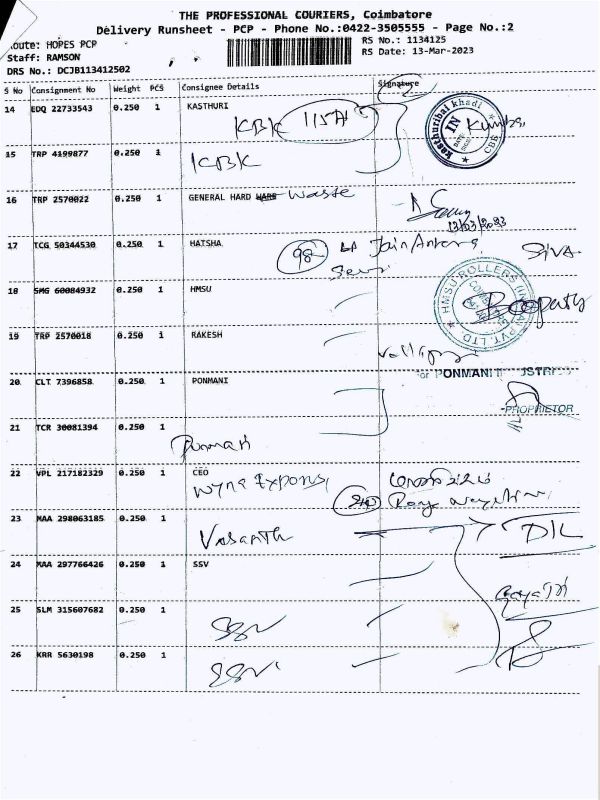 THE PROFESSIONAL COURIERS, Coimbatore
Delivery Runsheet - PCP - Phone No.:0422-3505555 - Page No.:2
Route: HOPES PCP
RS No.: 1134125
Staff: RAMSON
RS Date: 13-Mar-2023
DRS No.: DCJB113412502
S No Consignment No Weight PCS Consignee Details Signature
14 EDQ 22733543 0.250 1 KASTHURI
KBK 115A
kasthuribai khadi IN CBE
15 TRP 4199877 0.250 1 KBK
16 TRP 2570022 0.250 1 GENERAL HARD WARE Waste
13/03/2023
17 TCG 50344530 0.250 1 HATSHA 98 Jain Antara
Siva
18 SMG 60084932 0.250 1 HMSU
HMSU ROLLERS PVT. LTD
Boopathy
19 TRP 2570018 0.250 1 RAKESH
20 CLT 7396858 0.250 1 PONMANI
for PONMANI
PROPRIETOR
21 TCR 30081394 0.250 1
Ponmani
22 VPL 217182329 0.250 1 CEO
23 MAA 298063185 0.250 1 Vasanth
24 MAA 297766426 0.250 1 SSV
Gayatri
25 SLM 315607682 0.250 1 SSV
26 KRR 5630198 0.250 1 SSV